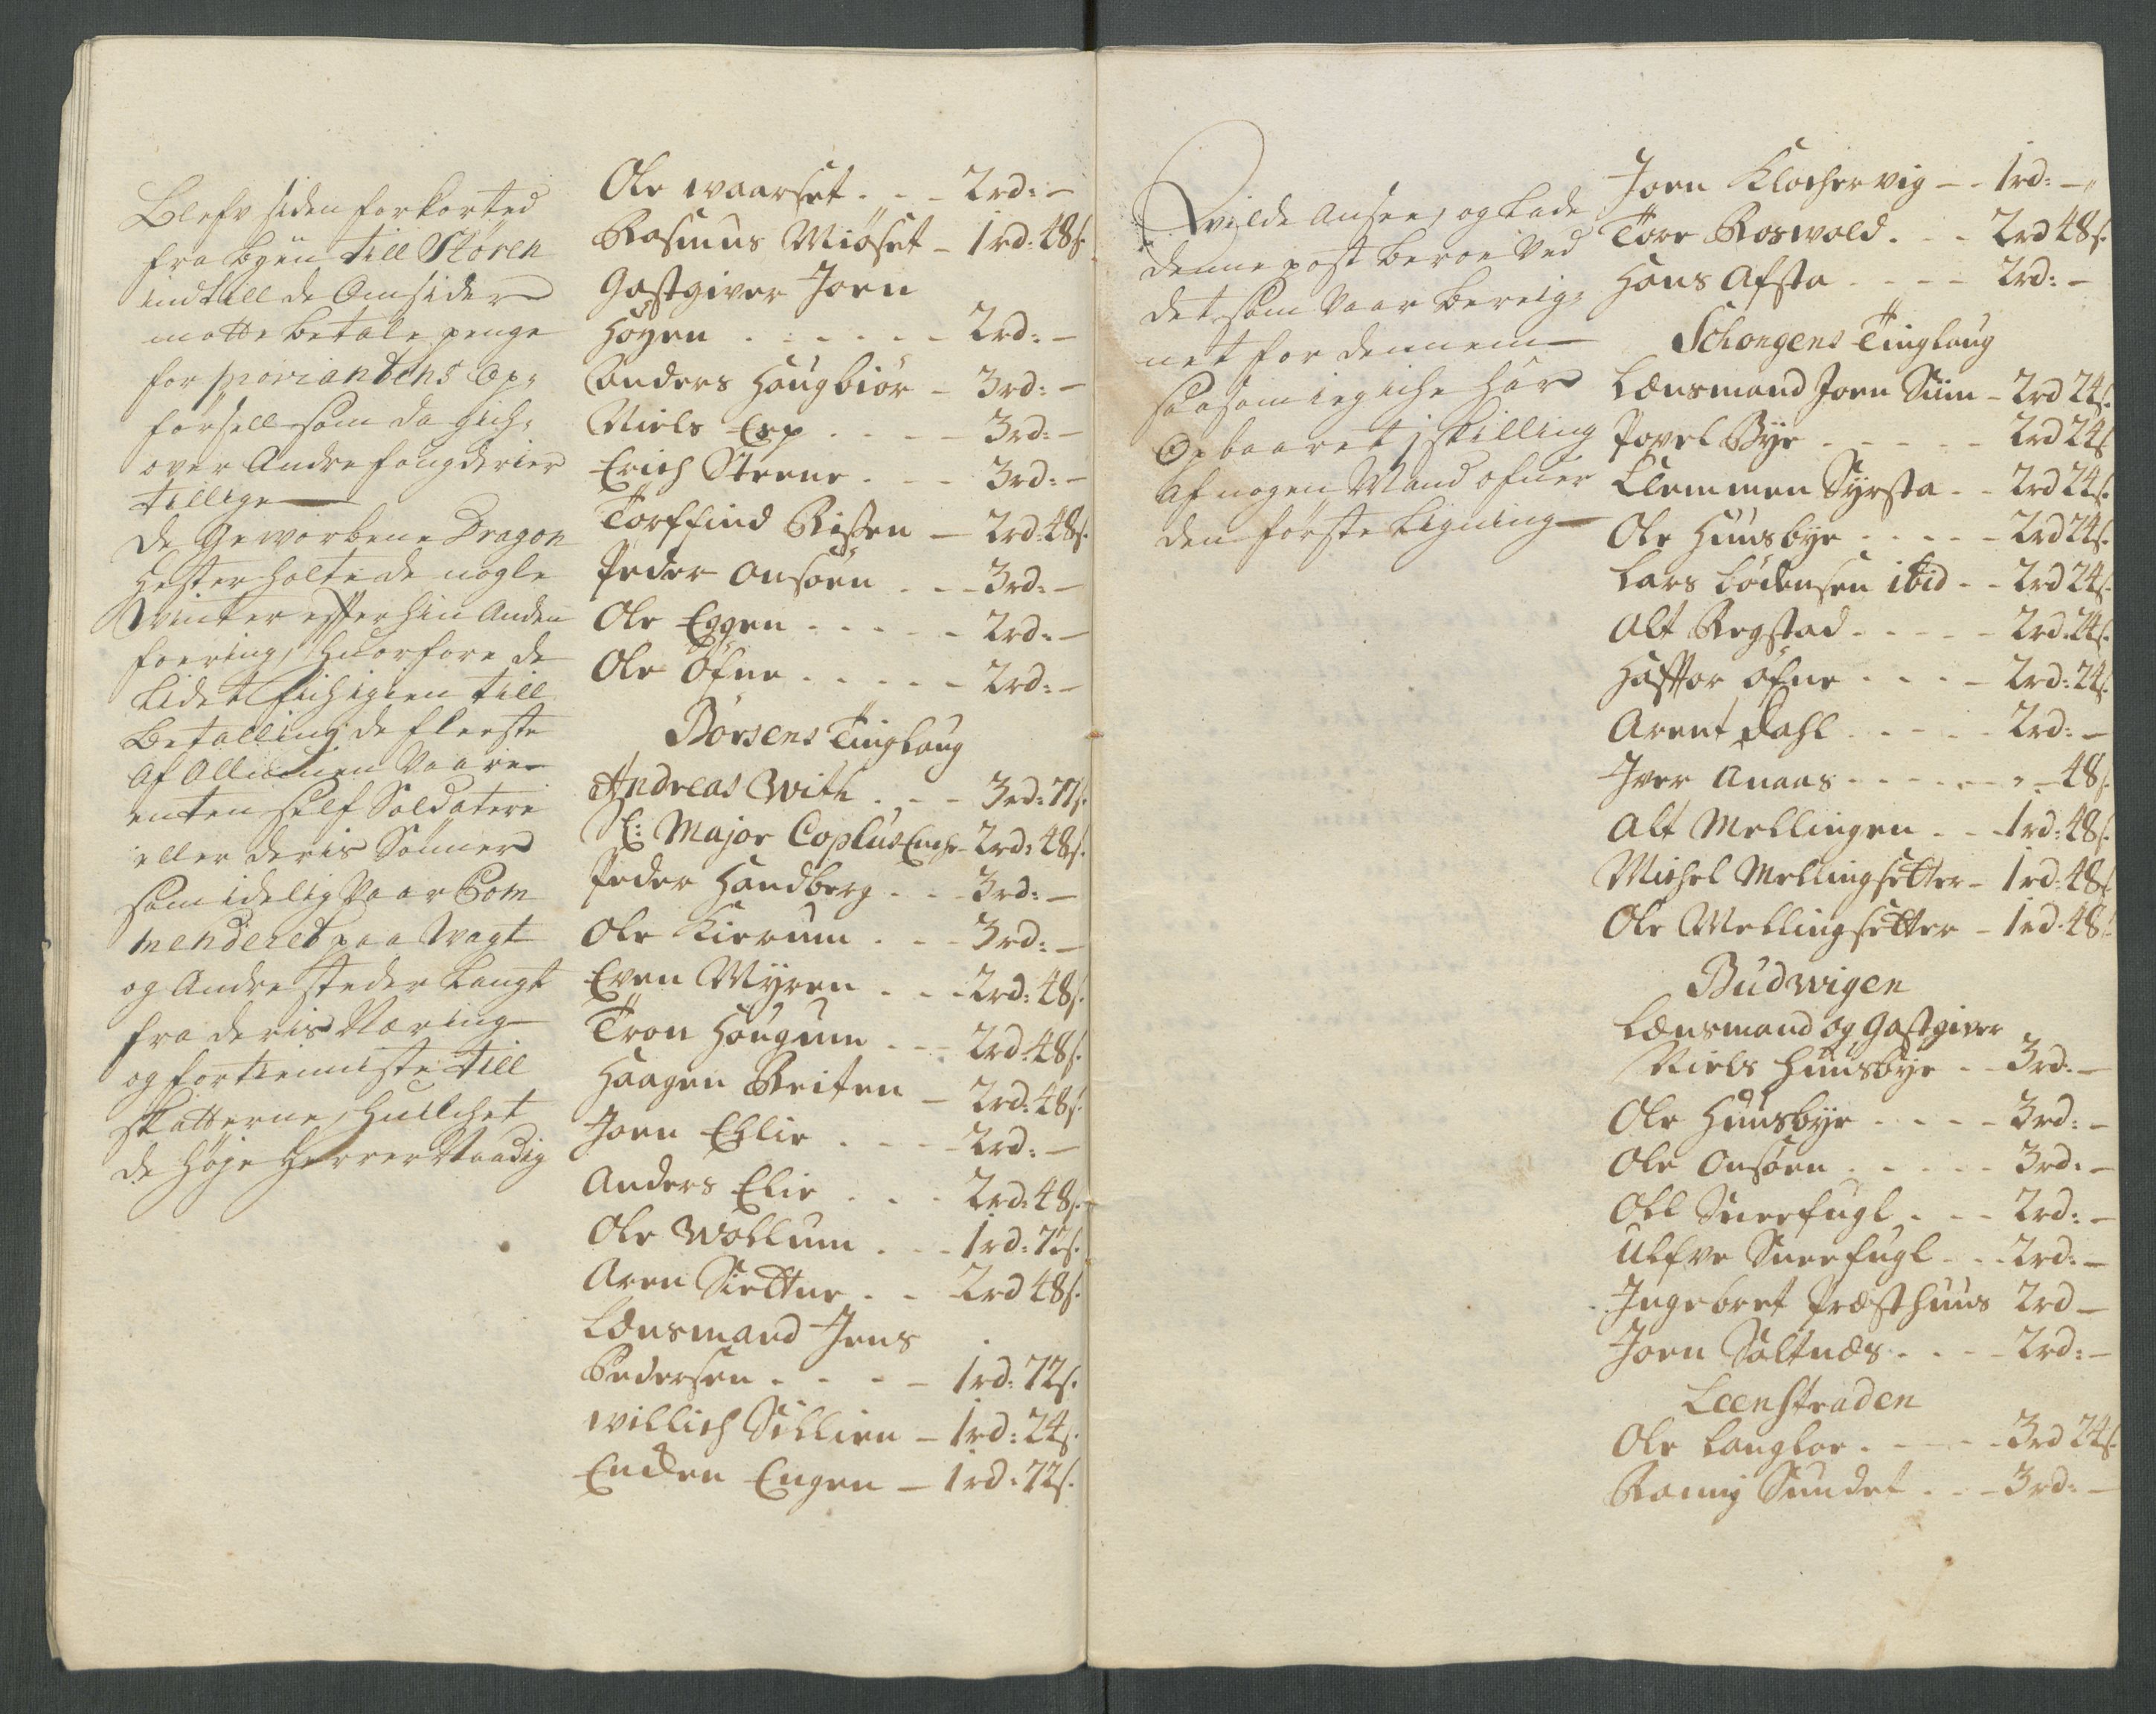 Blefv siden forkorted
fra byen till Stören
indtill de Omsider
motte betale penge
for proviantens op,
försell som da gich,
over Andre fougderier
tillige
De Geworbene Dragon
Hester holte de nogle
Vinter efter hin Anden
foering, Huorfore de
Lidet fich igien till
Betalling de fleeste
Af Allmuen Vaare
enten self Soldatere
eller deris Sönner
som idelig Vaar Com
menderet paa Wagt
og Andre steder langt
fra deris Næring
og fortienniste till
skatterne, Huilchet
de Höje Herrer Naadig
Ole Waarset - - 2rd: -
Rasmus Miöset - 1rd: 48s.
Gastgiver Joen
Höyen - - - - - 2rd: -
Anders Haugbiör - 3rd: -
Niels Esp - - - - 3rd: -
Erich Steene - - - 3rd: -
Torffind Rissen - 2rd: 48s.
Peder Onsöen - - 3rd: -
Ole Eggen - - - - 2rd: -
Ole Öfne - - - - - 2rd: -
Börsens Tinglaug
Andreas With - - 3rd: 77s.
Sl: Major Coplus Enche - 2rd: 48s.
Peder Handberg - - 3rd: -
Ole Kierum - - 3rd: -
Even Myren - - 2rd: 48s.
Tron Hougum - - 2rd: 48s.
Haagen Breiten - 2rd: 48s.
Joen Ellie - - - 2rd: -
Anders Elie - - - 2rd: 48s.
Ole Wollum - - 1rd: 72s.
Aren Siettne - - 2rd 48s.
Lænsmand Jens
Pedersen - - - - 1rd: 72s.
Willich Sillien - 1rd: 24s.
Enden Engen - 1rd: 72s.
Wilde Ansee, og Lade
denne post beroe Ved
det som Vaar bereig,
net for dennem
saasom ieg iche har
Opbaaret 1 skilling
Af nogen Mand ofuer
den förste Ligning
Joen Klochervig - - 1rd: -
Tore Roswold - - 2rd 48s.
Hans Afsta - - - - 2rd: -
Schongens Tinglaug
Lænsmand Joen Siim - 2rd 24s.
Povel Bye - - - - - 2rd 24s.
Clemmen Syrsta - - 2rd 24s.
Ole Huusbye - - - - 2rd 24s.
Lars Lödensen ibid - - 2rd 24s.
Alt Regstad - - - - 2rd: 24s.
Haffor Öfne - - - - 2rd: 24s.
Arent Dahl - - - - 2rd: -
Iver Anaas - - - - - - 48s.
Alt Mellingen - - 1rd: 48s.
Michel Mellingsetter - 1rd: 48s.
Ole Mellingsetter - 1rd: 48s.
Budwigen
Lænsmand og Gastgiver
Niels Huusbye - - 3rd: -
Ole Huusbye - - - - 3rd: -
Ole Onsöen - - - - 3rd: -
Oll Sneefugl - - - 2rd: -
Ulfve Sneefugl - - 2rd: -
Ingebret Præsthuus 2rd -
Joen Saltnæs - - - 2rd: -
Leenstraden
Ole Langloe - - - - 3rd 24s.
Ronnig Sundet - - - 3rd: -